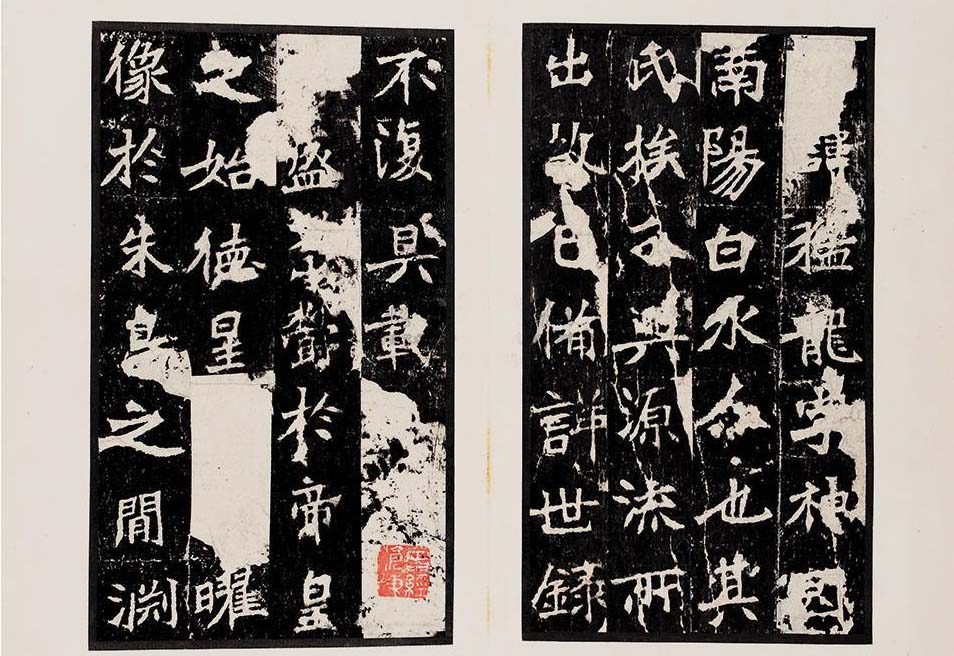 諱猛龍字神冏
南陽白水人也其
氏族分興源流所
出故已備詳世錄
不復具載
盛於帝皇
之始德星曜
像於朱鳥之間淵